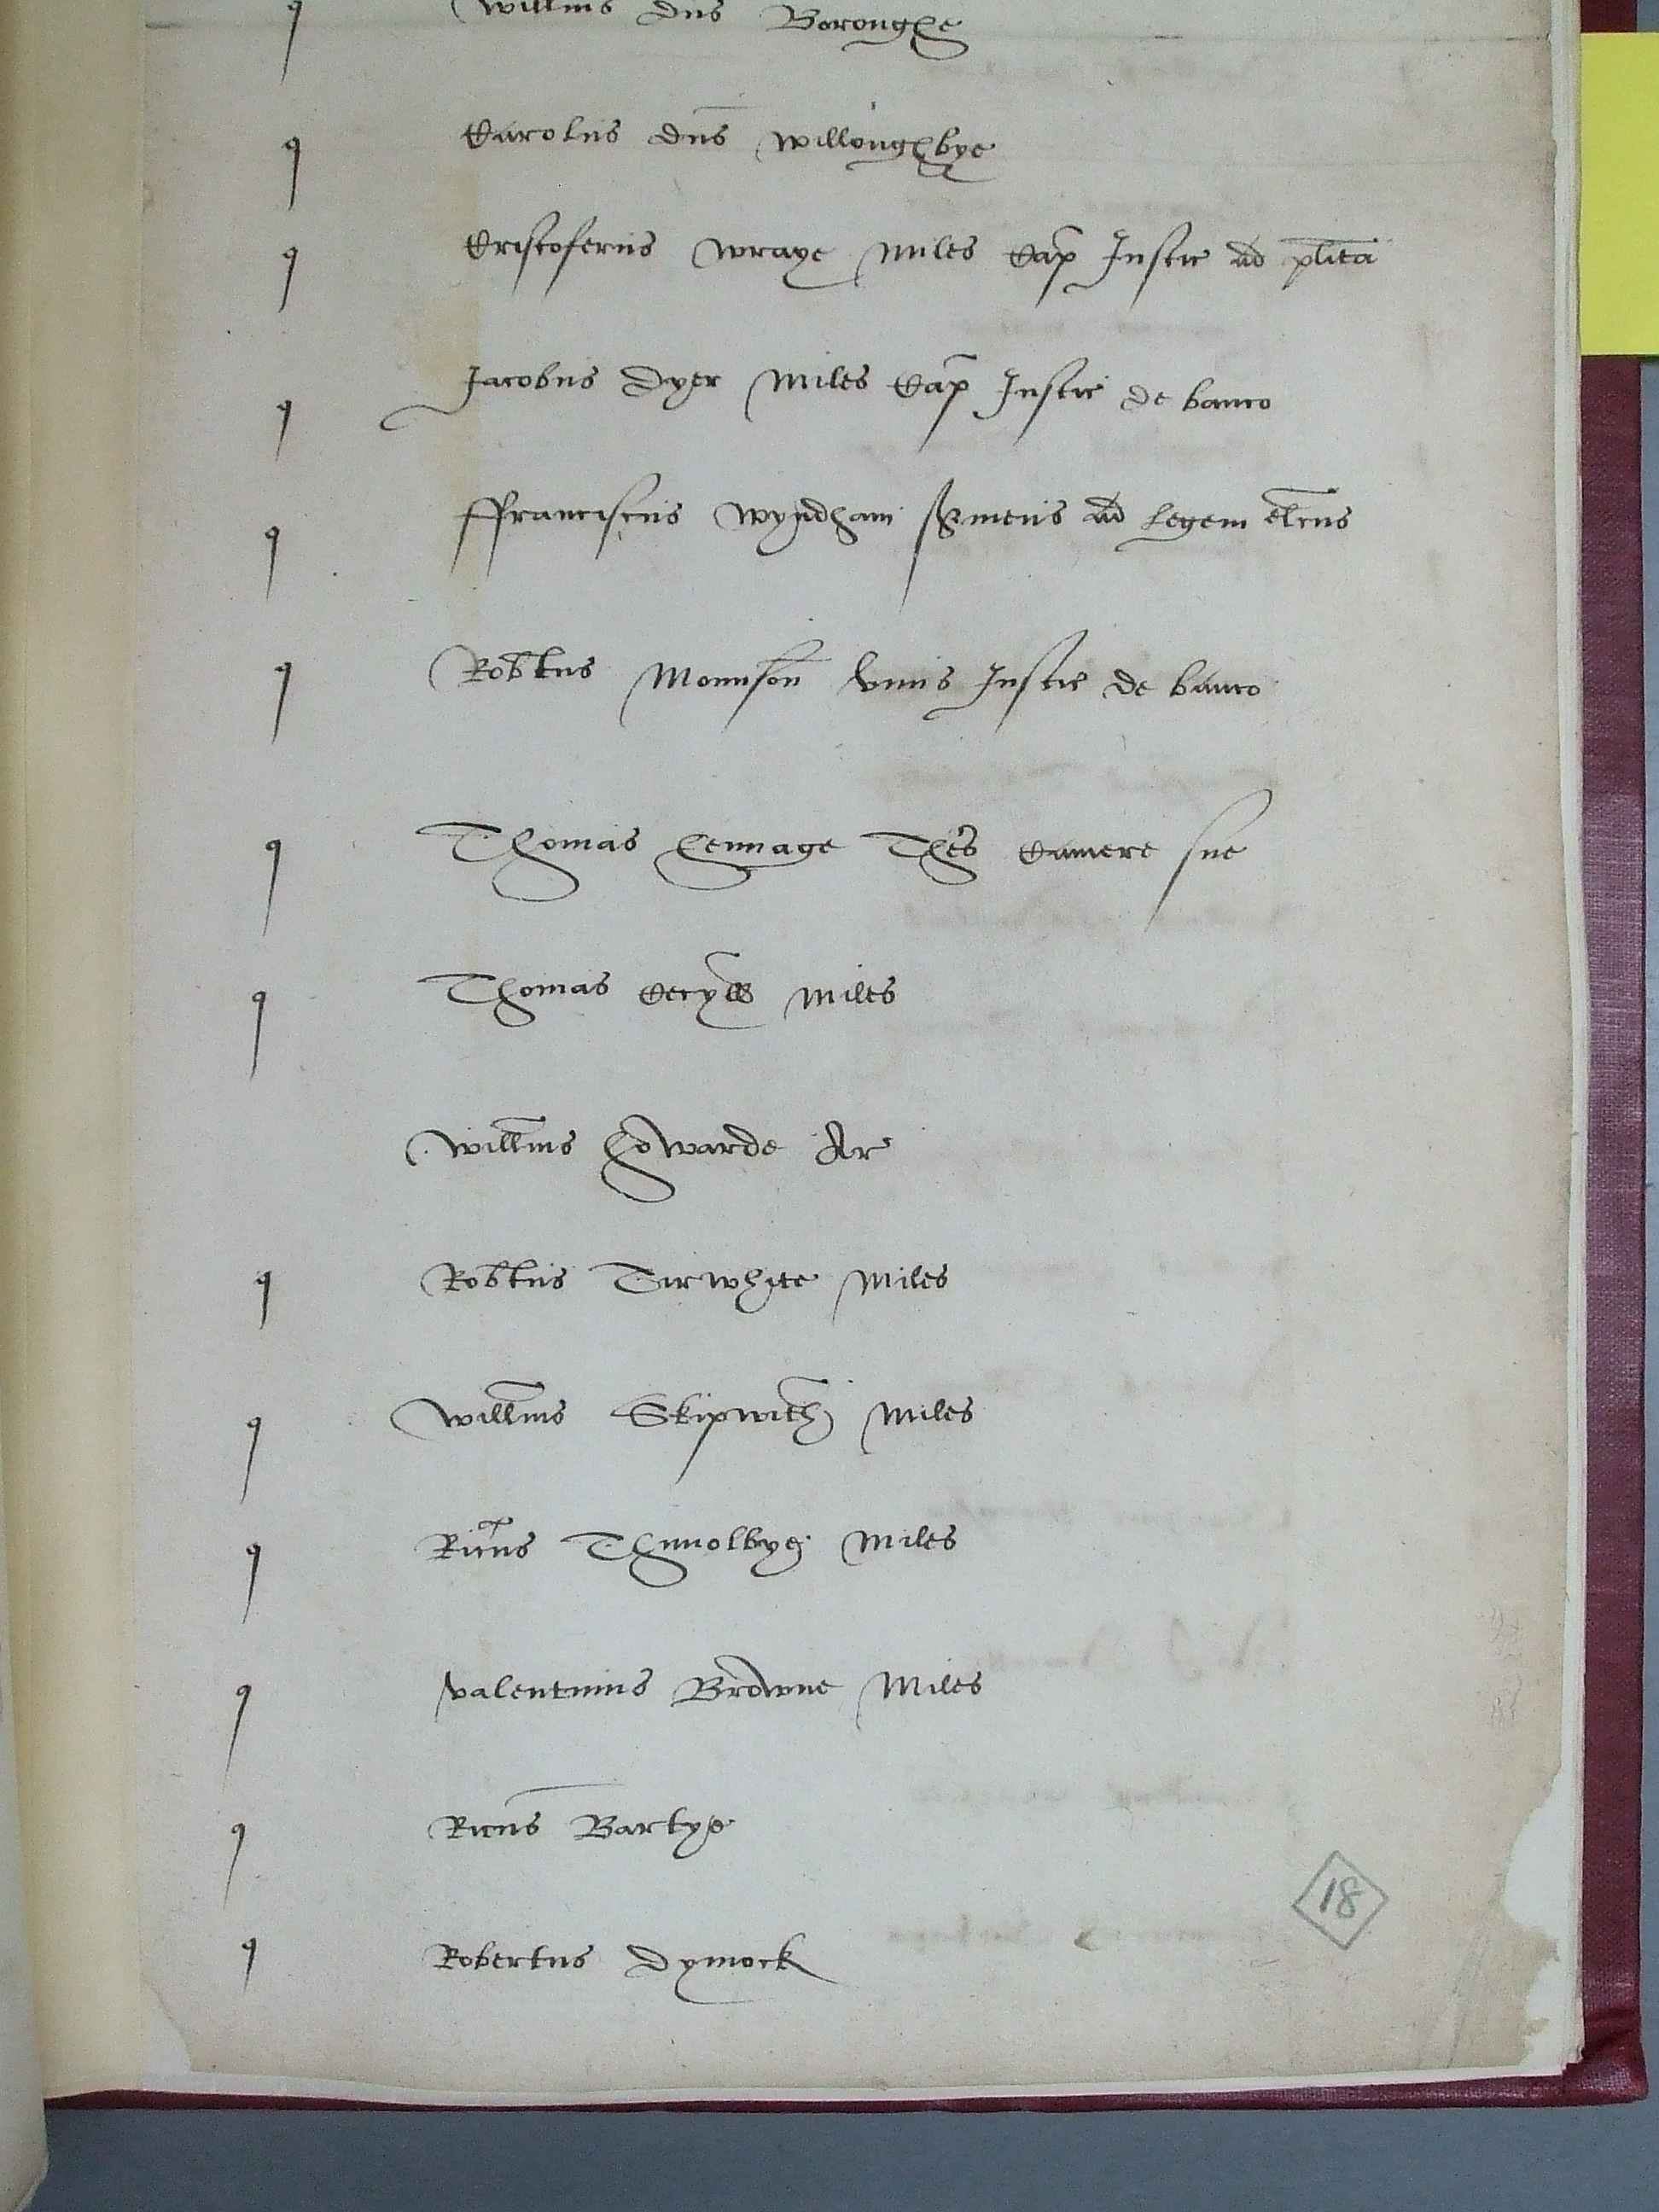 q Willms dns Boroughe
q Carolus dns Willoughbye
q Cristoferus Wraye Miles Cap Justic ad plita
q Jacobus Dyer Miles Cap Justic de banco
q ffranciscus Wyndham ad legem
q Robtus Mounson unus Justic de banco
q Thomas hennage Thes Camere sue
q Thomas Cecyll Miles
Willms howarde Ar
q Robtus Tirwhite Miles
q Willms Skipwith Miles
q Ricus Thimolbye Miles
q Valentinus Browne Miles
q Ricus Bartye
q Robertus Dymock
18